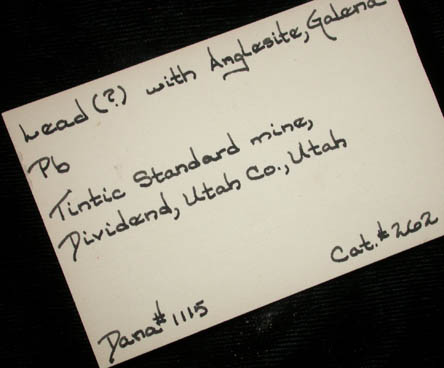 Lead (?) with Anglesite, Galena
Pb
Tintic Standard mine,
Dividend, Utah Co., Utah
Cat.# 262
Dana# 1115